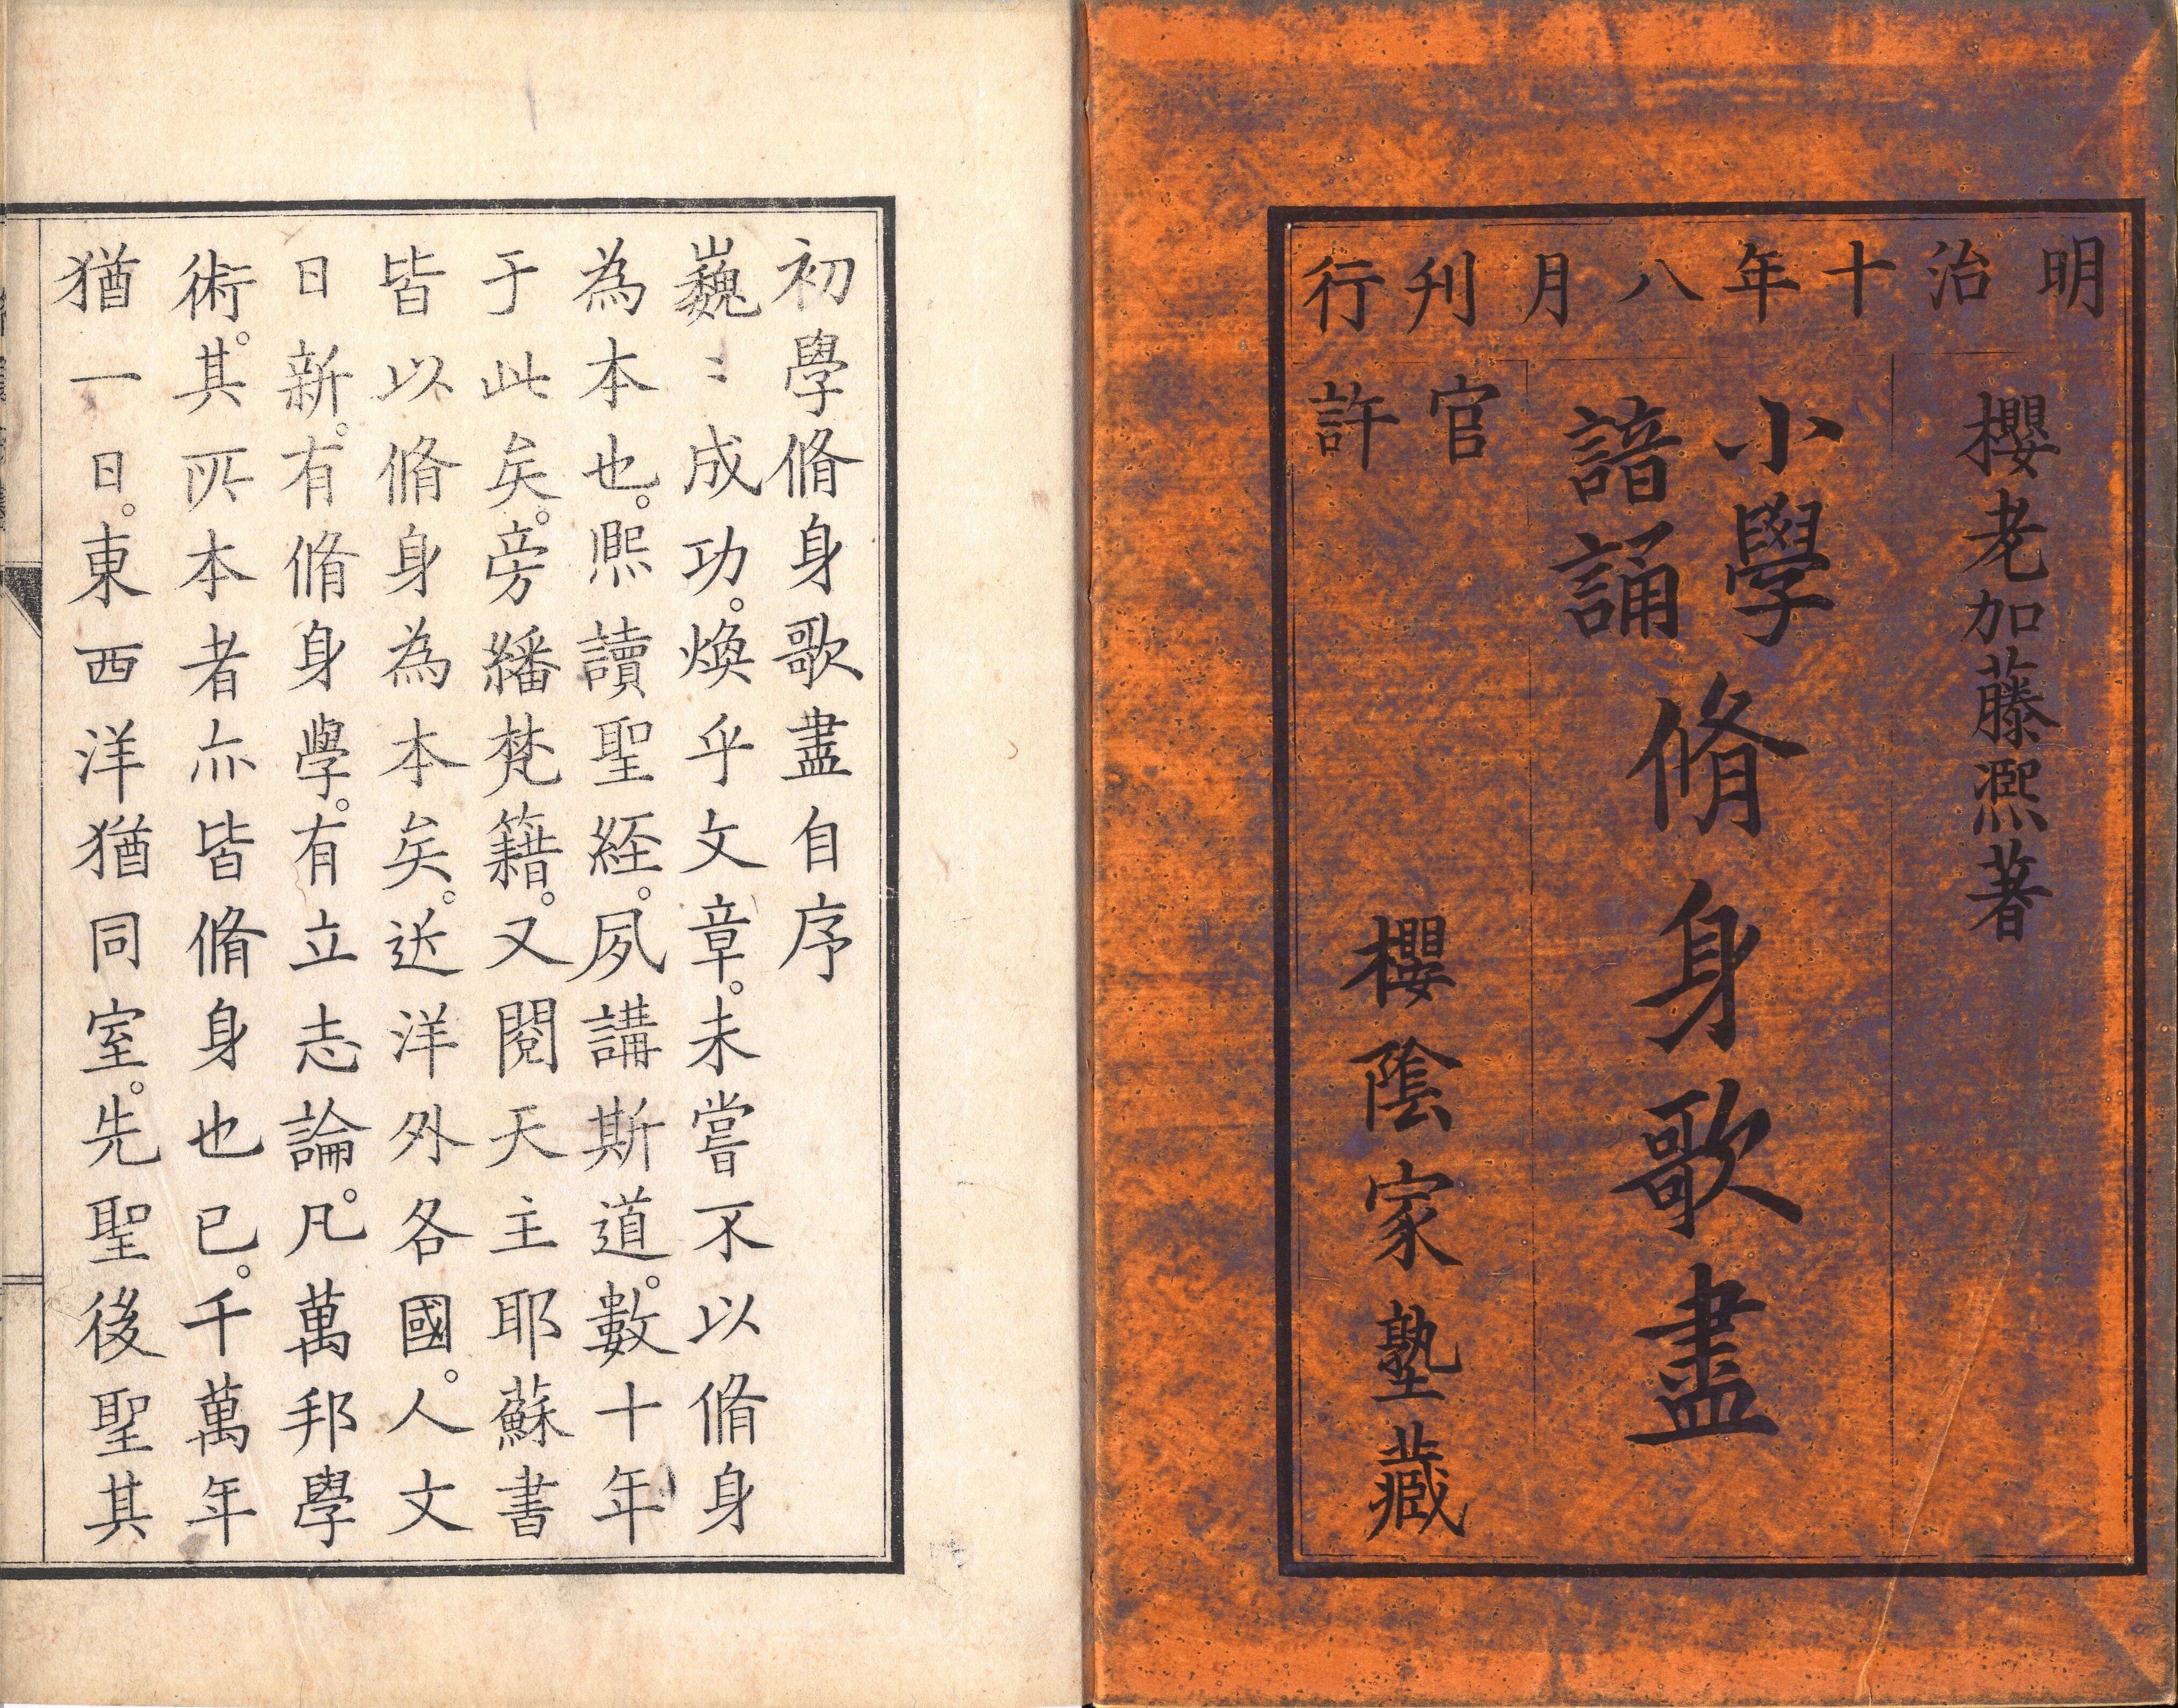 明治十年八月刊行
櫻老加藤熈著
小學
諳誦
脩身歌盡
官許
櫻陰家塾藏
初學脩身歌盡自序
巍〻成功。煥乎文章。未嘗不以脩身
為本也。熈讀聖経。夙講斯道。數十年
于此矣。旁繙梵籍。又閱天主耶蘇書
皆以脩身為本矣。近洋外各國。人文
日新。有脩身學。有立志論。凡萬邦學
術。其所本者亦皆脩身也已。千萬年
猶一日。東西洋猶同室。先聖後聖其